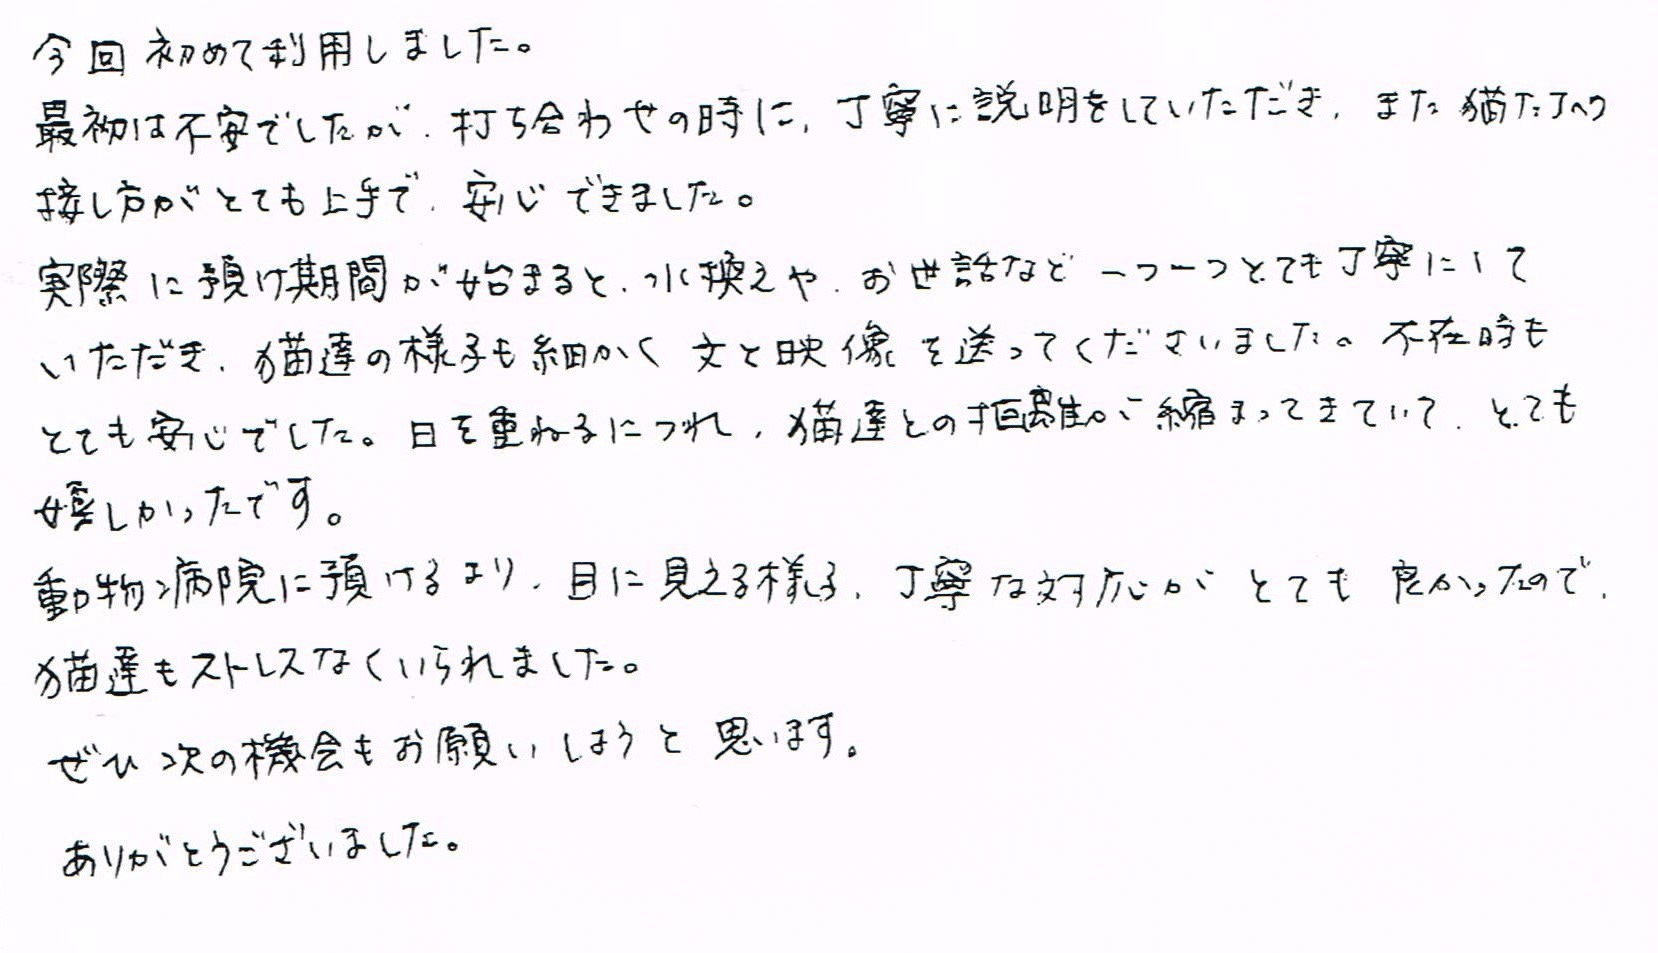 今回初めて利用しました。
最初は不安でしたが、打ち合わせの時に、丁寧に説明をしていただき、また猫たちへの
接し方がとても上手で、安心できました。
実際に預け期間が始まると、水換えや、お世話など一つ一つとても丁寧にして
いただき、猫達の様子も細かく文と映像を送ってくださいました。不在時も
とても安心でした。日を重ねるにつれ、猫達との距離が縮まってきていて、とても
嬉しかったです。
動物病院に預けるより、目に見える様子、丁寧な対応がとても良かったので、
猫達もストレスなくいられました。
ぜひ次の機会もお願いしようと思います。
ありがとうございました。